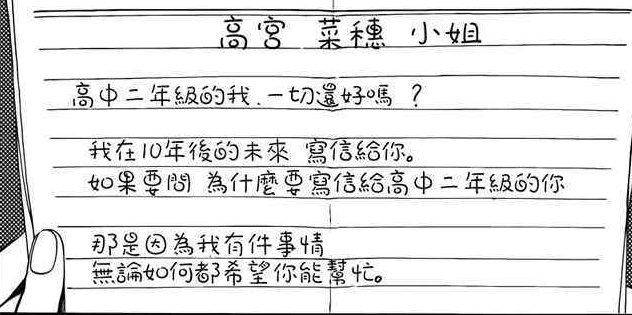 高宮 菜穗 小姐
高中二年級的我.一切還好嗎？
我在10年後的未來 寫信給你。
如果要問 為什麼要寫信給高中二年級的你
那是因為我有件事情
無論如何都希望你能幫忙。